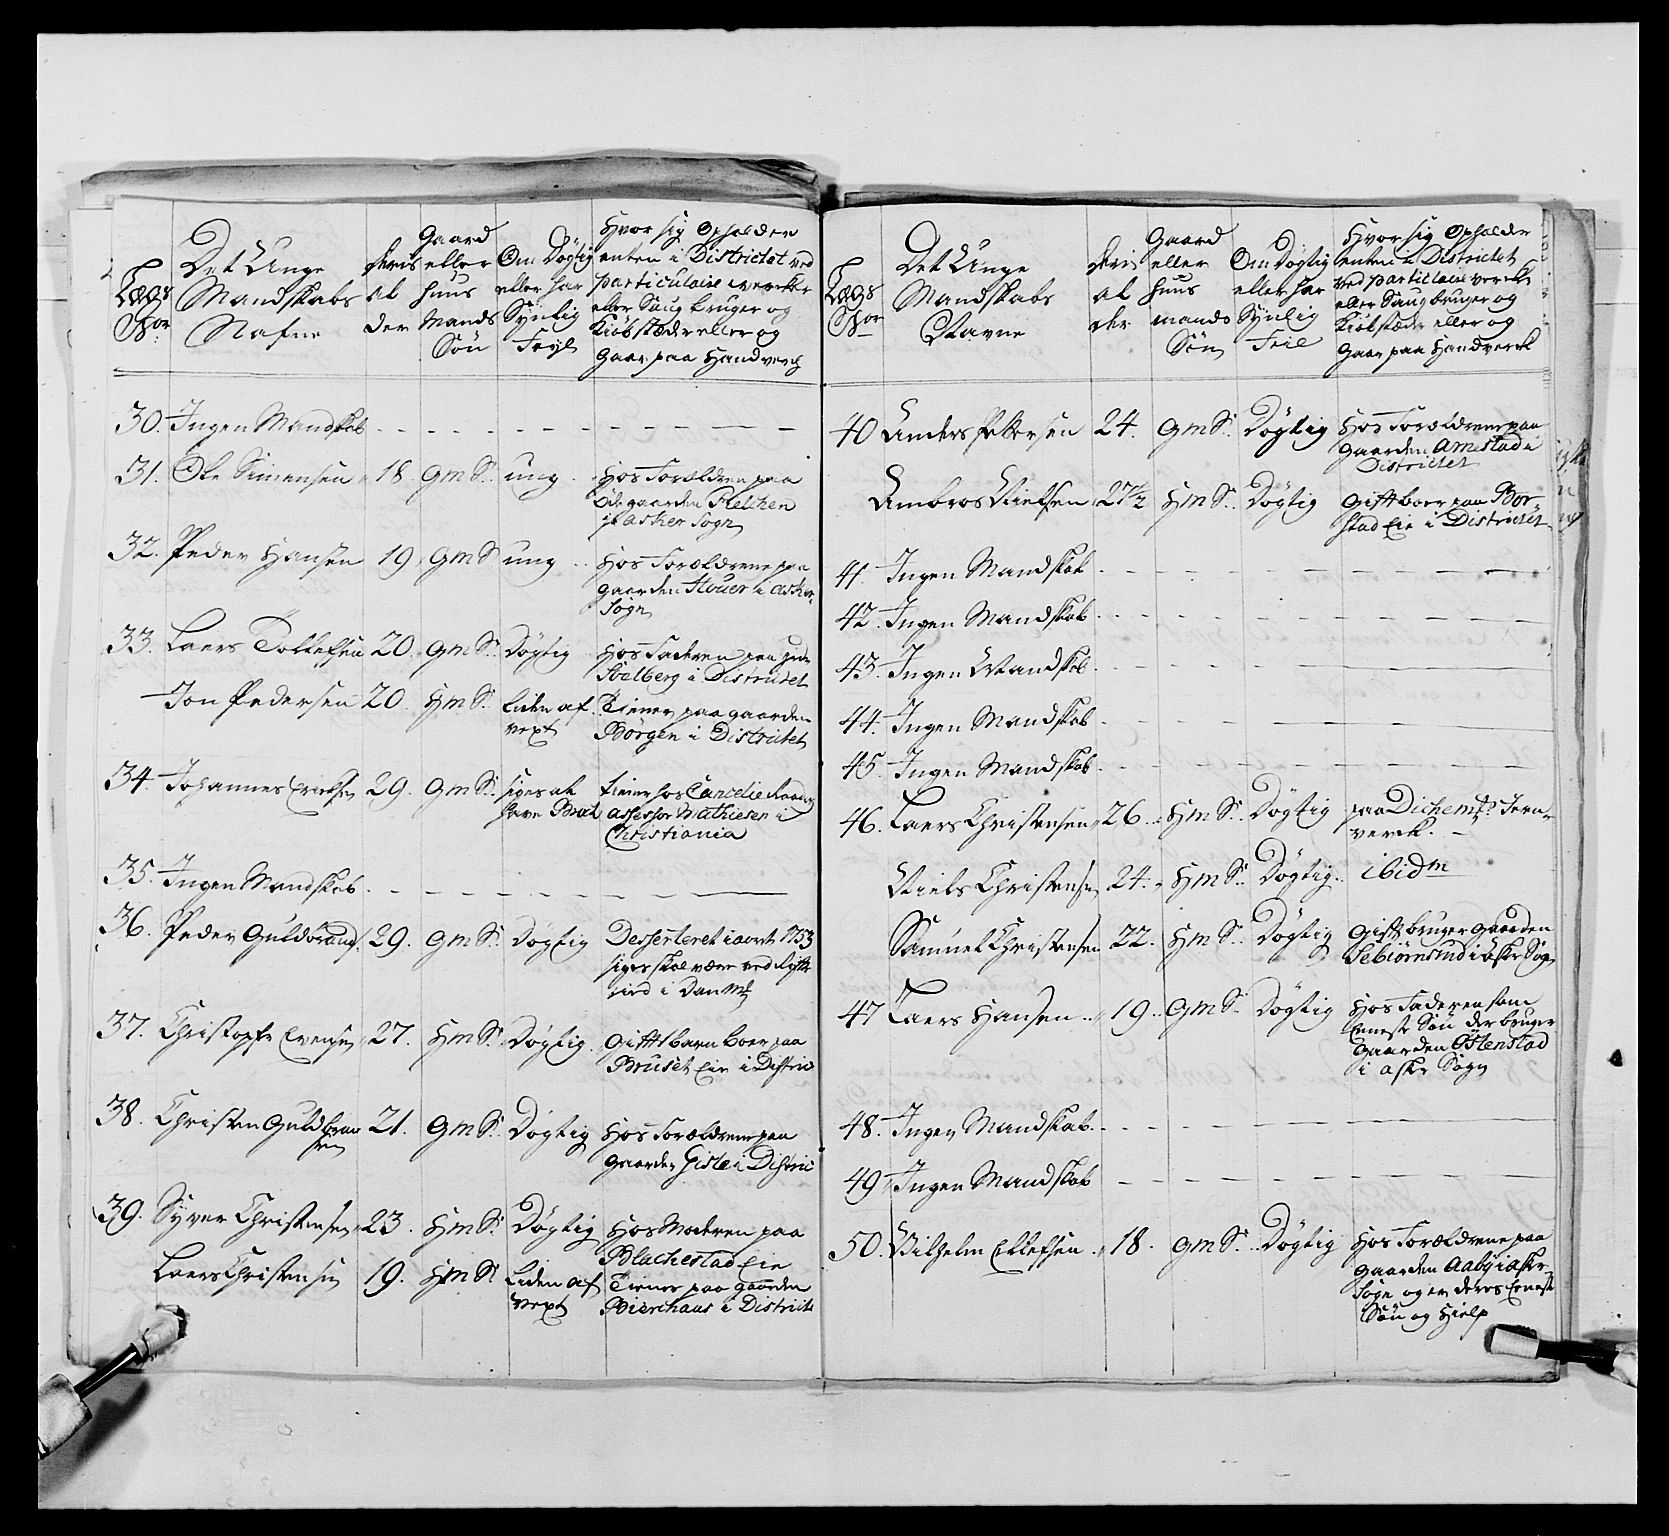 Lægs No
Det Unge Mandskabs Nafne
Deris alder
Gaard eller huus Mands Søn
Om Døgtig eller har Synlig Feyl
Hvor sig Opholder enten i Districtet ved particulaire wercker eller Saug bruger og Kiøbstæder eller og gaar paa Handverch
30. Ingen Mandskab
31. Ole Simensen 18 gmS. ung Hos Forældren paa gaarden Flechen i asker Sogn
32. Peder Hansen 19 gmS ung Hos Forældrene paa gaarden Houer i asker Sogn
33. Laers Tollefsen 20 gmS. Døgtig Hos Faderen paa Solberg i Districtet
Jon Pedersen 20 HmS. Liden af vext Tiener paa gaarden Børgen i Districtet
34. Johannes Erichsen 29. gmS. siges at have Brok tiener hos Cancelie Raad assessor Mathiesen i Christiania
35. Ingen Mandskab
36. Peder Guldbrands. 29. gmS. Døgtig Desserteret i aaret 1753 siges skal være ved i Danmk
37. Christopher Evensen 27. HmS. Døgtig gift 1 barn boer paa Bruset Eie i Distric
38. Christen Guldbransen 21. gmS. Døgtig Hos Forældrene paa gaarden Gisle i Distric
39. Syver Christensen 23. HmS. Døgtig Hos Moderen paa Blachestad Eie
Laers Christensen 19. HmS. Liden af vext Tiener paa gaarden Bierchaas i Districte
Lægs No
Det Unge Mandskabs Navne
Deris alder
Gaard eller huus mands Søn
Om Døgtig eller har Synlig Feil
Hvor sig Opholder enten i Districtet ved particulaire vercker eller Saug bruger og Kiøbstæder eller og gaar paa Handverck
40 Anders Pettersen 24. gmS. Døgtig Hos Forældrene paa gaarden Arnestad i Districtet
Ambros Nielsen 27½ HmS. Døgtig gift boer paa Borstad Eie i Districtet
41. Ingen Mandskab
42. Ingen Mandskab
43. Ingen Mandskab
44. Ingen Mandskab
45. Ingen Mandskab
46. Laers Christensen 26. HmS. Døgtig paa Dichemks Jernverck.
Niels Christensen 24. HmS. Døgtig. ibidm
Samuel Christensen 22. HmS. Døgtig gift bruger gaarden Sebiørnsrud i Asker Sogn
47 Laers Hansen 19. gmS. Døgtig Hos Faderen som Eneste Søn der bruger gaarden Østenstad i asker Sogn
48. Ingen Mandskab.
49. Ingen Mandskab
50. Vilhelm Ellefsen 18. gmS. Døgtig Hos Forældrene paa gaarden Aaby i asker Sogn og er deres Eneste Søn og Hielp